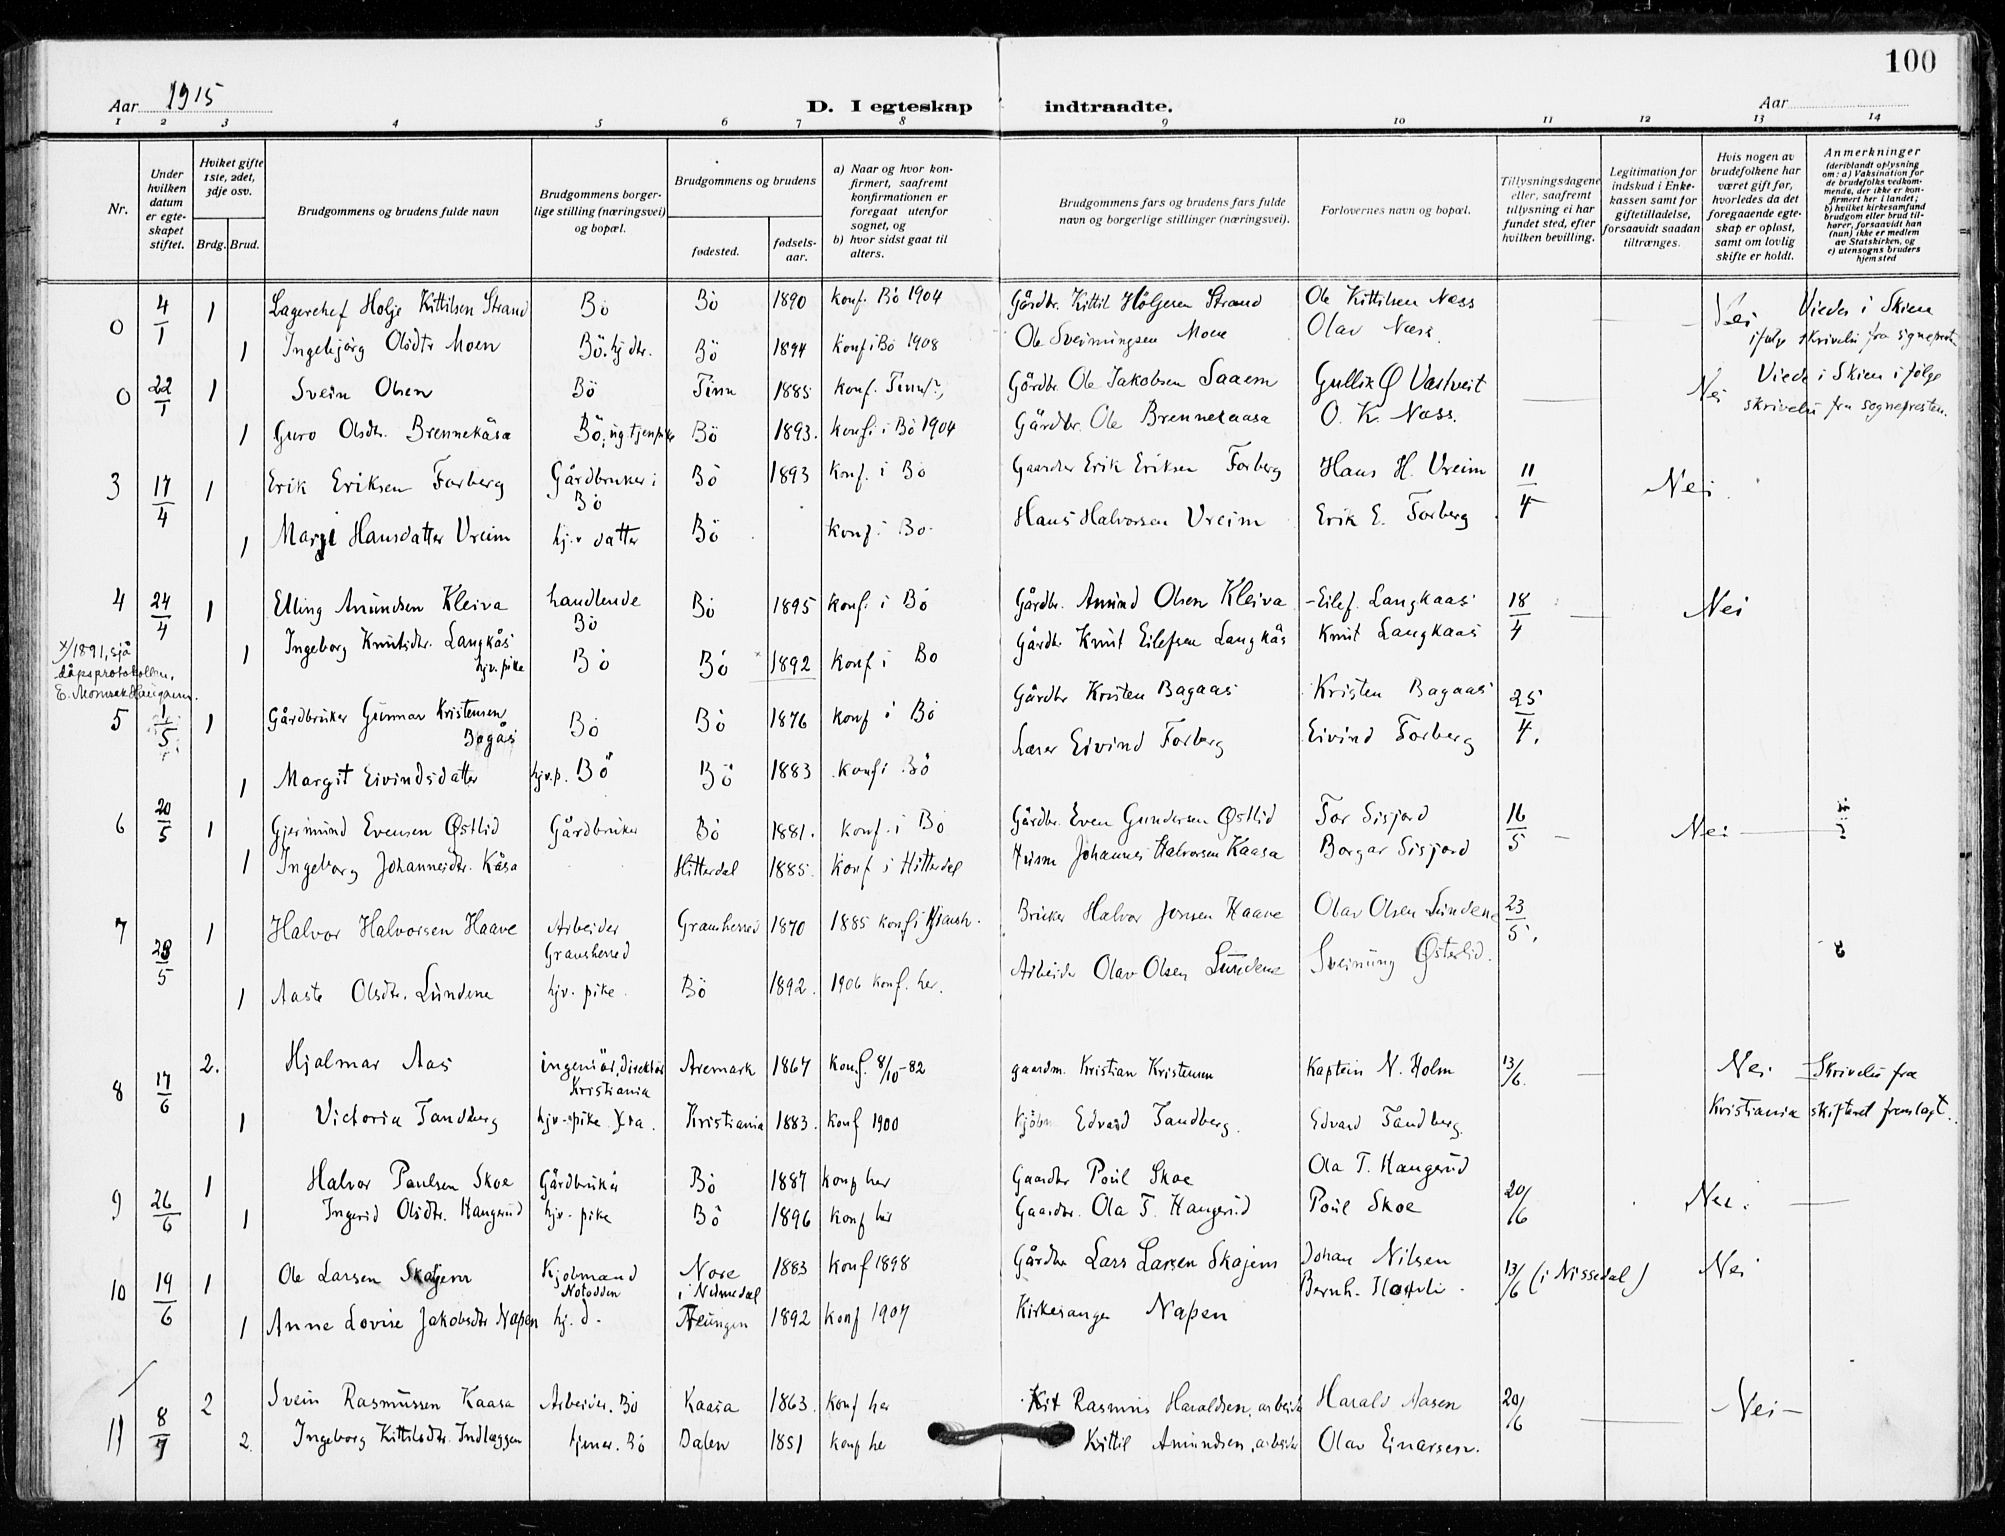 100
Aar 1915 D. I egteskap indtraadte. Aar
1 2 3 4 5 6 7 8 9 10 11 12 13 14
Nr.
Under hvilken datum er egteskapet stiftet.
Hvilket gifte 1ste, 2det, 3dje osv.
Brdg. Brud.
Brudgommens og brudens fulde navn
Brudgommens borgerlige stilling (næringsvei) og bopæl.
Brudgommens og brudens
fødested.
fødselsaar.
a) Naar og hvor konfirmert, saafremt konfirmationen er foregaat utenfor sognet, og
b) hvor sidst gaat til alters.
Brudgommens fars og brudens fars fulde navn og borgerlige stillinger (næringsvei).
Forlovernes navn og bopæl.
Tillysningsdagene eller, saafremt tillysning ei har fundet sted, efter hvilken bevilling.
Legitimation for indskud i Enkekassen samt for giftetilladelse, forsaavidt saadan tiltrænges.
Hvis nogen av brudefolkene har været gift før, hvorledes da det foregaaende egteskap er opløst, samt om lovlig skifte er holdt.
Anmerkninger (deriblandt oplysning om: a) Vaksination for de brudefolks vedkommende, der ikke er konfirmert her i landet; b) hvilket kirkesamfund brudgom eller brud tilhører, forsaavidt han (hun) ikke er medlem av Statskirken, og c) utensogns bruders hjemsted
0 4/1 1 Lagerchef Holje Kittilsen Strand Bö Bö 1890 konf. Bö 1904 Gårdbr. Kittil Höljesen Strand Ole Kittilsen Næss Nei Viedes i Skien
1 Ingebjörg Olsdtr Moen Bö. hj. dtr. Bö 1894 Konf i Bö 1908 Ole Sveinungsen Moen Olav Næss ifølge skrivelse fra sogneprest
0 22/1 1 Svein Olsen Bö Tinn 1885 konf. Tinn?, Gårdbr. Ole Jakobsen Saaem Gullik Ø Vastveit Nei Viede i Skien i følge
1 Guro Olsdtr. Brennekåsa Bö, ug. tjenpike Bö 1893. konf i Bö 1904 Gårdbr. Ole Brennekaasa O. K. Næss. skrivelse fra sognepresten.
3 17/4 1 Erik Eriksen Forberg Gårdbruker i Bö Bö 1893 konf. i Bö Gaardbr Erik Eriksen Forberg Hans H. Vreim 11/4 Nei.
1 Margi Hansdatter Vreim hj.v datter Bö konf. i Bö Hans Halvorsen Vreim Erik E. Forberg
4 24/4 1 Elling Amundsen Kleiva handlende Bö Bö 1895 konf. i Bö Gårdbr. Amund Olsen Kleiva Eilef. Langkaas 18/4 Nei
1 Ingeborg Knutsdtr. Langkås hjv. pike Bö Bö x 1892 konf i Bö Gårdb. Knut Eilefsen Langkås Knut Langkaas
x/1891, sjå
dåpsprotokollen.
5 1/5 1 Gårdbruker Gunnar Kristensen Bagås Bö Bö 1876 konf i Bö Gårdbr Kristen Bagaas Kristen Bagaas 25/4.
1 Margit Eivindsdatter hjv.p. Bö Bö 1883 konf i Bö Lærer Eivind Forberg Eivind Forberg
6 20/5 1 Gjermund Evensen Østlid Gårdbruker Bö 1881. konf. i Bö Gårdbr. Even Gundersen Østlid Tor Sisjord 16/5 Nei
1 Ingeborg Johannesdtr. Kåsa Hitterdal 1885. konf i Hitterdal Husm Johannes Halvorsen Kaasa Borgar Sisjord
7 28/5 1 Halvor Halvorsen Haave Arbeider Gransherred Gransherred 1870 1885 konf i Gransh. Bruker Halvor Jensen Haave Olav Olsen Lundene 23/5.
1 Aaste Olsdtr. Lundene hjv. pike Bö 1892. 1906 konf. her. Arbeider Olav Olsen Lundene Sveinung Østerlid.
8 17/6 2. Hjalmar Aas ingeniör, direktör Kristiania Aremark 1867 konf. 8/10-82 gaardm. Kristian Kristensen Kaptein N. Holm 13/6. Nei Skrivelse fra
1 Victoria Tandberg hjv. pike Xra. Kristiania 1883. konf 1900 Kjöbm Edvard Tandberg. Edvard Tandberg. Kristiania skifteret fremlagt.
9 26/6 1 Halvor Paulsen Skoe Gårdbruker Bö 1887 konf her Gaardbr Poul Skoe Ola T. Haugerud 20/6 Nei.
1 Ingerid Olsdtr. Haugerud hjv. pike Bö 1896 konf her Gaardbr. Ola T. Haugerud Poul Skoe
10 19/6 1 Ole Larsen Skajem Kjøbmand Notodden Nore i Numedal 1883 konf 1898 Gårdbr Lars Larsen Skajem Johan Nilsen 13/6 (i Nissedal) Nei
1 Anne Lovise Jakobsdtr Napen hj. d. Treungen 1892 konf 1907 Kirkesanger Napen Bernh.
11 8/7 2 Svein Rasmussen Kaasa Arbeider. Bö Kaasa 1863. konf her Rasmus Haraldsen, arbeider Harald Aasen 20/6 Nei
2. Ingeborg Kittilsdtr. Indlæggen tjener. Bö Dalen 1851 konf he Kittil Amundsen, arbeider Olav Einarsen.